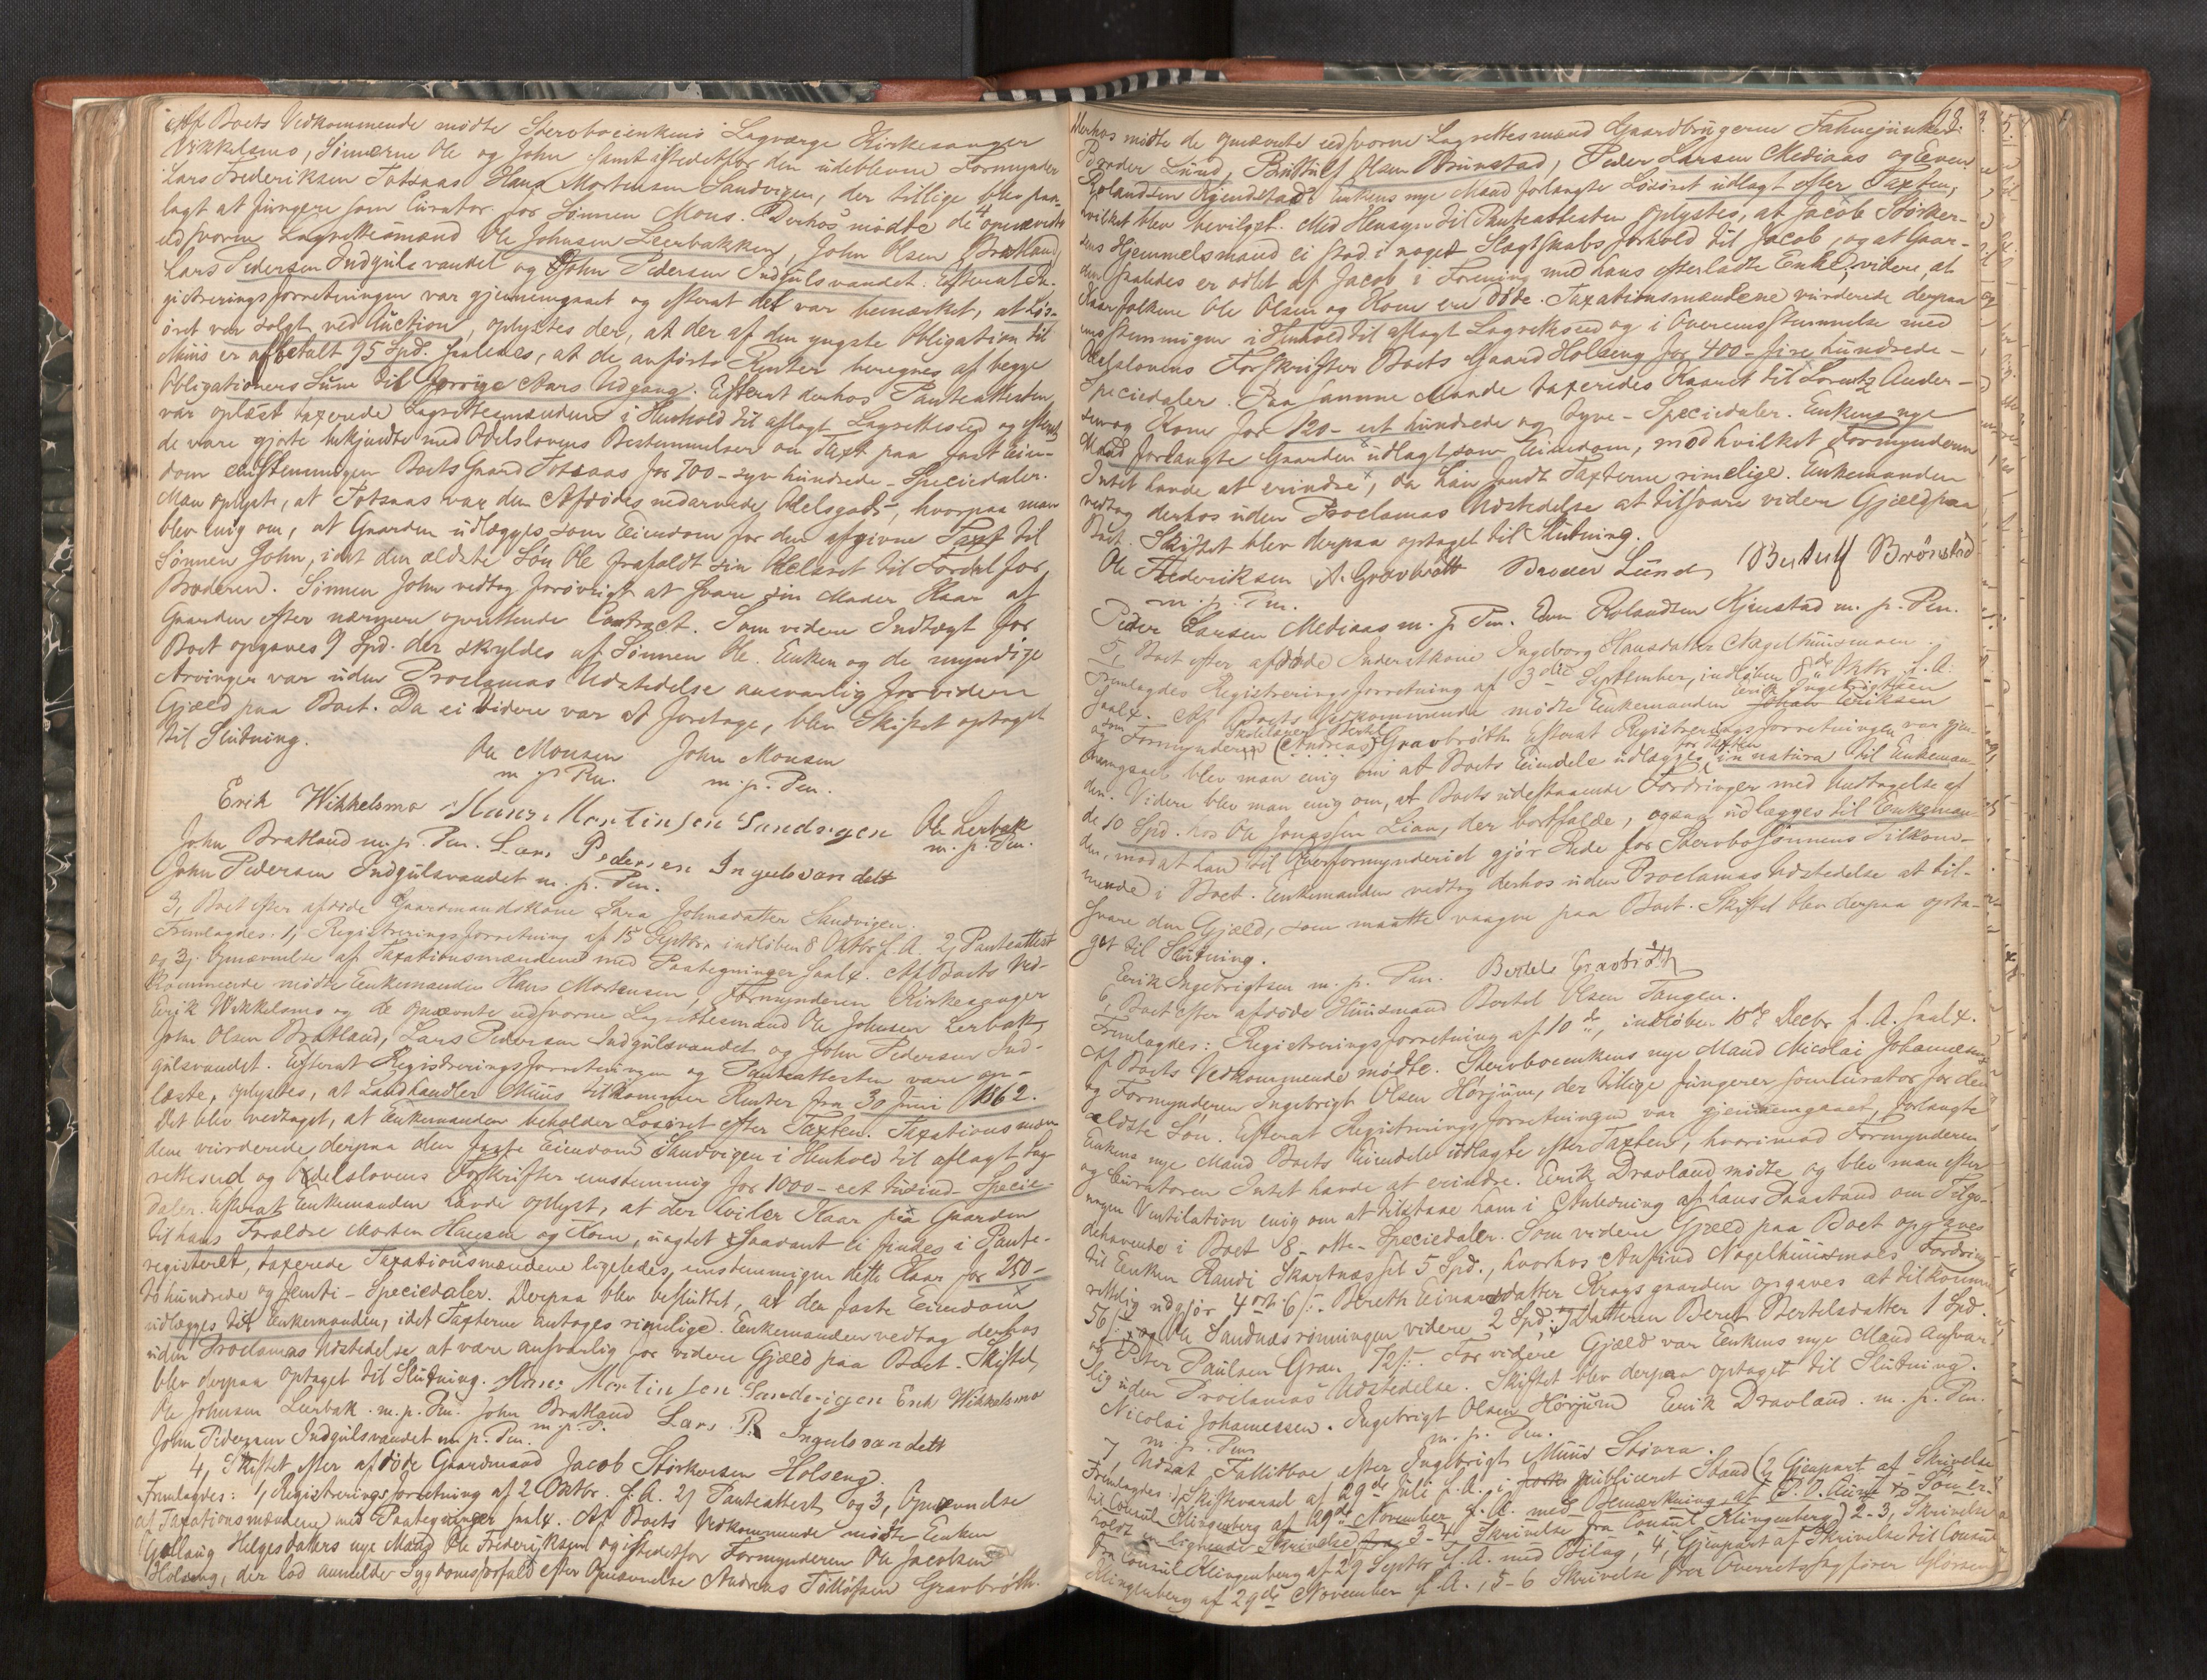 Af Boets Vedkommende mødte Stervboenkens Lagværge Kirkesanger
Wikkelsmo, Sønnerne Ole og John samt istedetfor den udeblevne Formynder
Lars Frederiksen Totsaas Hans Mortensen Sandvigen, der tillige blev paa-
lagt at fungere som Curator for Sønnen Mons. Derhos mødte de 4 opnævnte
edsvorne Lagrettesmænd Ole Johnsen Leerbakken, John Olsen Bratland,
Lars Pedersen Indgulsvandet og John Pedersen Indgulsvandet. Efterat Re-
gistreringsforretningen var gjennemgaaet og efterat det var bemærket, at Løs-
øret var solgt ved Auction, oplystes der, at der af den yngste Obligation til
Muus er afbetalt 95 Spd. saaledes, at de anførte Renter beregnes af begge
Obligationers Sum til forrige Aars Udgang. Efterat derhos Panteattesten
var oplæst taxerede Lagrettesmændene i Henhold til aflagt Lagrettesed og efterat
de vare gjorte bekjendte med Odelslovens Bestemmelser om Taxt paa fast Eien-
dom eenstemmigen Boets Gaard Totsaas for 700 - syv hundrede - Speciedaler.
Man oplyste, at Totsaas var den Afdødes nedarvede Odelsgods, hvorpaa man
blev enig om, at Gaarden udlægges som Eiendom for den afgivne Taxt til
Sønnen John, idet den ældste Søn Ole frafaldt sin Odelsret til Fordel for
Broderen. Sønnen John vedtog forøvrigt at svare sin Moder Kaar af
Gaarden efter nærmere oprettende Contract. Som videre Indtægt for
Boet opgaves 9 Spd. der skyldes af Sønnen Ole. Enken og de myndige
Arvinger var uden Proclamas Udstedelse ansvarlig for videre
Gjæld paa Boet. Da ei videre var at foretage, blev Skiftet optaget
til Slutning.
Ole Monsen John Monsen
m. p. Pen. m. p. Pen.
Erik Wikkelsmo Hans Mortinsen Sandvigen Ole Lerbak
m. p. Pen.
John Bratland m. p. Pen. Lars Pedersen Ingulsvandett
John Pedersen Indgulsvandet m. p. Pen.
3, Boet efter afdøde Gaardmandskone Sara Johnsdatter Sandvigen.
Fremlagdes: 1, Registreringsforretning af 15 Septbr. indløben 8 Oktbr f. A. 2, Panteattest
og 3, Opnævnelse af Taxationsmændene med Paategninger saal. Af Boets Ved-
kommende mødte Enkemanden Hans Mortensen, Formynderen Kirkesanger
Erik Wikkelsmo og de opnævnte edsvorne Lagrettesmænd Ole Johnsen Lerbak,
John Olsen Bratland, Lars Pedersen Indgulsvandet og John Pedersen Ind-
gulsvandet. Efterat Registreringsforretningen og Panteattesten vare op-
læste, oplystes, at Landhandler Muus tilkommer Renter fra 30 Juni 1862.
Det blev vedtaget, at Enkemanden beholder Løsøret efter Taxten. Taxationsmæn-
dene vurderede derpaa den faste Eiendom Sandvigen i Henhold til aflagt Lag-
rettesed og Odelslovens Forskrifter eenstemmig for 1000 - eet tusind - Specie-
daler. Efterat Enkemanden havde oplyst, at der hviler Kaar paa Gaarden
til hans Forældre Morten Hansen og Kone, uagtet saadant ei findes i Pante-
registeret, taxerede Taxationsmændene ligeledes eenstemmigen dette Kaar for 250 -
to hundrede og femti - Speciedaler. Derpaa blev besluttet, at den faste Eiendom
udlægges til Enkemanden, idet Taxterne antages rimelige. Enkemanden vedtog derhos
uden Proclamas Udstedelse at være ansvarlig for videre Gjæld paa Boet. Skiftet
blev derpaa optaget til Slutning. Hans Mortinsen Sandvigen Erik Wikkelsmo
Ole Johnsen Leerbak m. p. Pen. John Bratland Lars P. Ingulsvandett
John Pedersen Indgulsvandet m. p. Pen. m. p. P.
4, Skiftet efter afdøde Gaardmand Jacob Størkersen Holseng.
Fremlagdes: 1, Registreringsforretning af 2 Oktbr. f. A. 2, Panteattest og 3, Opnævnelse
af Taxationsmændene med Paategninger saal. Af Boets Vedkommende mødte Enken
Gollaug Helgesdatters nye Mand Ole Frederiksen og istedetfor Formynderen Ole Jacobsen
Holseng, der lod anmelde Sygdomsforfald efter Opnævnelse Andreas Gravbrøth.
28.
Derhos mødte de opnævnte edsvorne Lagrettesmænd Gaardbrugerne Fahnejunker
Broder Lund, Bertulf Olsen Brønstad, Peder Larsen Mediaas og Even
Rolandsen Kjenstad. Enkens nye Mand forlangte Løsøret udlagt efter Taxten,
hvilket blev bevilget. Med Hensyn til Panteattesten oplystes, at Jacob Størker-
sens Hjemmelsmand ei stod i noget Slægtskabsforhold til Jacob, og at Gaar-
den saaledes er odlet af Jacob i Forening med hans efterladte Enke; videre, at
Kaarfolkene Ole Olsen og Kone ere døde. Taxationsmændene vurderede derpaa
eenstemmigen i Henhold til aflagt Lagrettesed og i Overensstemmelse med
Odelslovens Forskrifter Boets Gaard Holseng for 400 - fire hundrede -
Speciedaler. Paa samme Maade taxeredes Kaaret til Lorentz Ander-
sen og Kone for 120 - eet hundrede og tyve - Speciedaler. Enkens nye
Mand forlangte Gaarden udlagt som Eiendom, mod hvilket Formynderen
Intet havde at erindre, da han fandt Taxterne rimelige. Enkemanden
vedtog derhos uden Proclamas Udstedelse at tilsvare videre Gjæld paa
Boet. Skiftet blev derpaa optaget til Slutning.
Ole Frederiksen A. Gravbrøtt Broder Lund Bertulf Brönstad
m. p. Pen.
Peder Larsen Mediaas m. p. Pen. Even Rolandsen Kjenstad m. p. Pen.
5, Boet efter afdøde Inderstkone Ingeborg Hansdatter Nagelhuusmoen.
Fremlagdes Registreringsforretning af 3die September, indløben 8de Oktbr. f. A.
Erik Ingebrigtsen
saal. Af Boets Vedkommende mødte Enkemanden Johan Eriksen
som Skolelærer Bertel
og Formynderen (Andreas) Gravbrøth. Efterat Registreringsforretningen var gjen-
for Taxten
nemgaaet blev man enig om at Boets Eiendele udlægges in natura til Enkeman-
den. Videre blev man enig om, at Boets udestaaende Fordringer med Undtagelse af
de 10 Spd. hos Ole Jonassen Lian, der bortfalde, ogsaa udlægges til Enkeman-
den, mod at han til Overformynderiet gjør Rede for Stervbosønnens Tilkom-
mende i Boet. Enkemanden vedtog derhos uden Proclamas Udstedelse at til-
svare den Gjæld, som maatte vaagne paa Boet. Skiftet blev derpaa opta-
get til Slutning.
Erik Ingebrigtsen m. p. Pen. Bertel Gravbröth
6, Boet efter afdøde Huusmand Bertel Olsen Tangen.
Fremlagdes: Registreringsforretning af 10de, indløben 15de Decbr. f. A. saal.
Af Boets Vedkommende mødte. Stervboenkens nye Mand Nicolai Johannesen
og Formynderen Ingebrigt Olsen Hørjum, der tillige fungerer som Curator for den
ældste Søn. Efterat Registreringsforretningen var gjennemgaaet, forlangte
Enkens nye Mand Boets Eiendele udlagte efter Taxten, hvorimod Formynderen
og Curatoren Intet havde at erindre. Erik Dravland mødte og blev man efter
nogen Ventilation enig om at tilstaae ham i Anledning af hans Paastand om Tilgo-
dehavende i Boet 8 - otte - Speciedaler. Som videre Gjæld paa Boet opgaves
til Enken Randi Skartnæs 5 Spd., hvorhos Anfind Nagelhuusmoes Fordring
rettelig udgjør 4 ort 6 s. Bereth Einarsdatter Kragsgaarden opgaves at tilkomme
56 s. og Ole Sandnæsrønningen videre 2 Spd. Datteren Beret Bertelsdatter 1 Spd.
og Peter Paulsen Gran 72 s. For videre Gjæld var Enkens nye Mand ansvar-
lig uden Proclamas Udstedelse. Skiftet blev derpaa optaget til Slutning.
Nicolai Johannessen. Ingebrigt Olsen Hørjum Erik Dravland. m. p. Pen.
m. p. Pen. m. p. Pen.
7, Udsat Fallitboe efter Ingebrigt Muus Støvra.
Fremlagdes: 1, Skiftevarsel af 29de Juli f. A. i publiceret Stand (2, Gjenpart af Skrivelse
til Consul Klingenberg af 19de November f. A. med Bemærkning, at P. O. Aune
holdt en lignende Skrivelse 3-4, Skrivelse fra Consul Klingenberg) 2-3, Skrivelse
fra Consul Klingenberg af 29 Septbr. f. A. med Bilag, 4, Gjenpart af Skrivelse til Consul
Klingenberg af 29de November f. A., 5-6 Skrivelse fra Overretssagfører